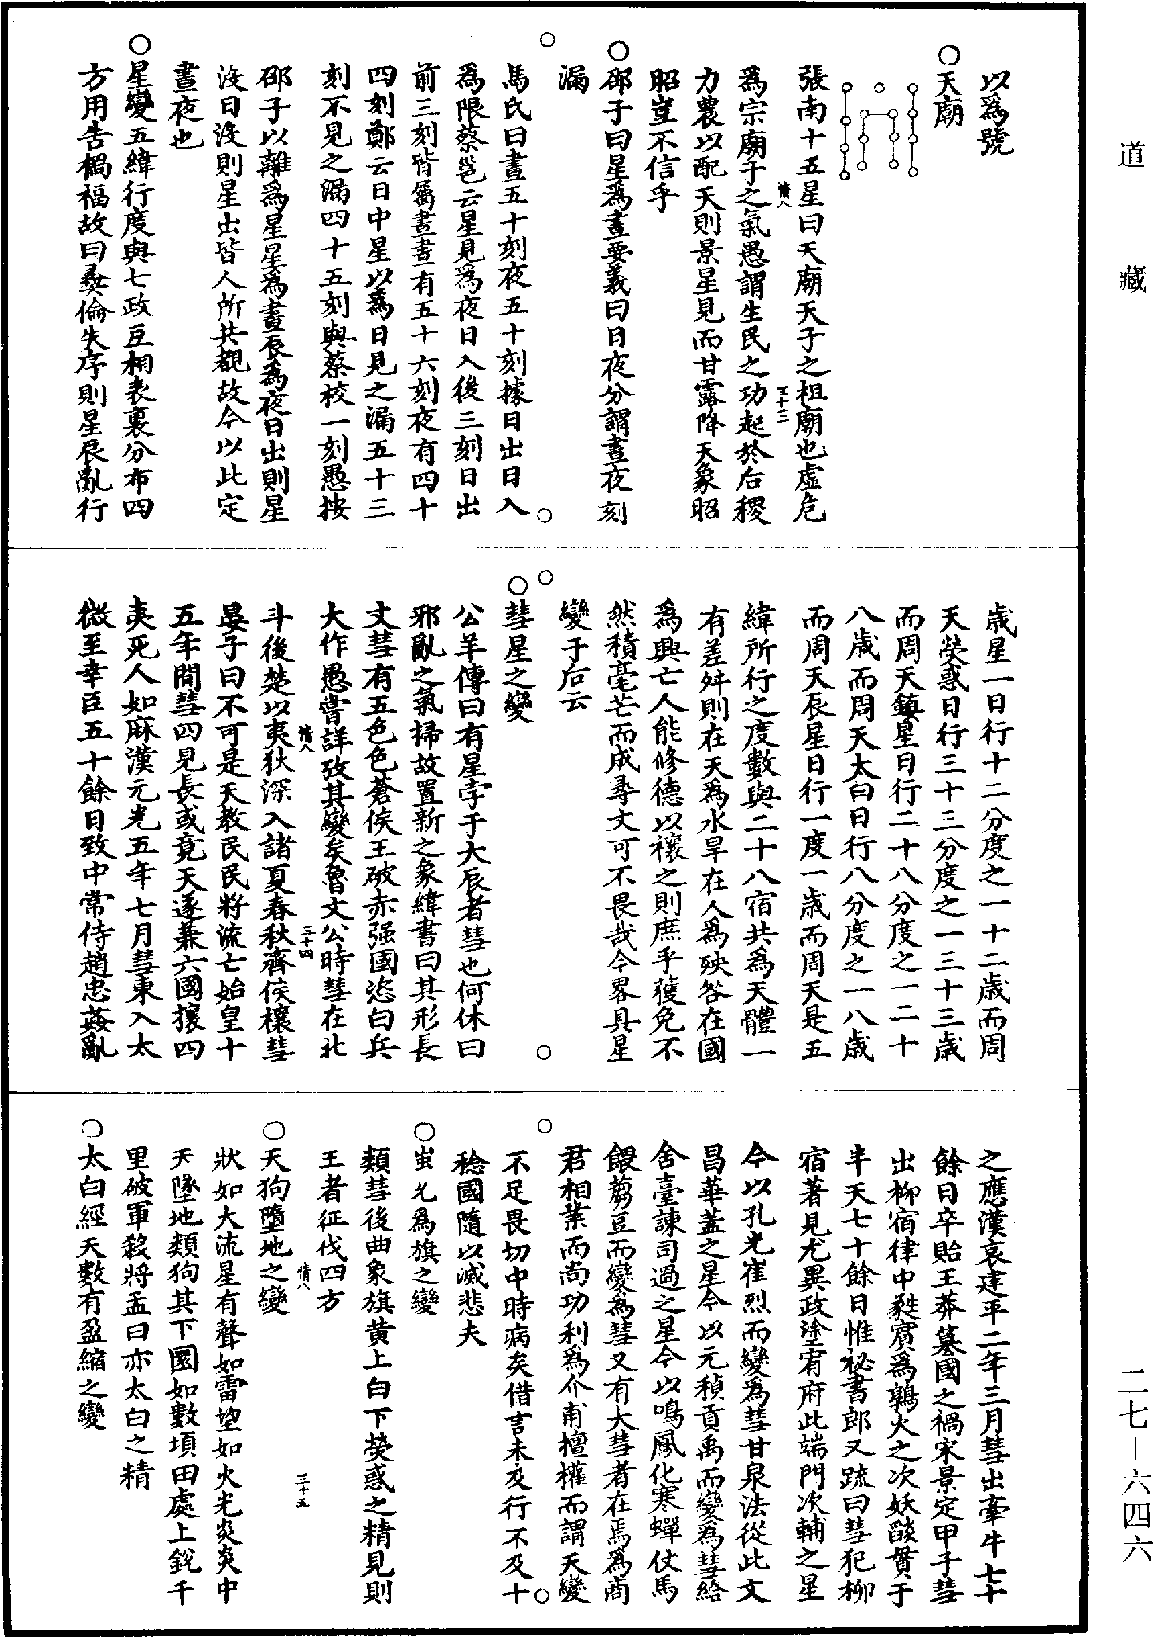 以爲號
○天廟
張南十五星曰天廟天子之祖廟也虛危
爲宗廟子之氣愚謂生民之功起於后稷
力農以配天則景星見而甘露降天象昭
昭豈不信乎
○邵子曰星爲晝要義曰日夜分謂晝夜刻
漏
馬氏曰晝五十刻夜五十刻據日出日入
爲限蔡邕云星見爲夜日入後三刻日出
前三刻皆屬晝晝有五十六刻夜有四十
四刻鄭云日中星以爲日見之漏五十三
刻不見之漏四十五刻與蔡校一刻愚按
邵子以離爲星星爲晝辰爲夜日出則星
沒日沒則星出皆人所共覩故今以此定
晝夜也
○星變五緯行度與七政互相表裏分布四
方用告禍福故曰彞倫失序則星辰亂行
歲星一日行十二分度之一十二歲而周
天熒惑日行三十三分度之一三十三歲
而周天鎮星日行二十八分度之一二十
八歲而周天太白日行八分度之一八歲
而周天辰星日行一度一歲而周天是五
緯所行之度數與二十八宿共爲天體一
有差舛則在天爲水旱在人爲殃咎在國
爲興亡人能修德以禳之則庶乎獲免不
然積毫芒而成尋丈可不畏哉今畧具星
變于后云
○彗星之變
公羊傳曰有星孛于大辰者彗也何休曰
邪亂之氣掃故置新之象緯書曰其形長
丈彗有五色色蒼侯王破赤强國恣白兵
大作愚嘗詳攷其變矣魯文公時彗在北
斗後楚以夷狄深入諸夏春秋齊侯禳彗
晏子曰不可是天教民民將流亡始皇十
五年間彗四見長或竟天逐蒹六國攘四
夷死人如麻漢元光五年七月彗東入太
微至幸臣五十餘日致中常侍趙忠姦亂
之應漢哀建平二年三月彗出牽牛七十
餘日卒貽王莽墓國之禍宋景定甲子彗
出柳宿律中蕤賓爲鶉火之次妖燄貫于
半天七十餘日惟祕書郎又疏曰彗犯柳
宿著見尤異政塗宥府此端門次輔之星
今以孔光崔烈而變爲彗甘泉法從此文
昌華蓋之星今以元稹貢禹而變爲彗給
舍臺諫司過之星今以鳴鳳化寒蟬仗馬
餵蒭豆而變爲彗又有大彗者在焉爲商
君相業而尚功利爲介甫檀權而謂天變
不足畏切中時病矣借言未及行不及十
稔國隨以滅悲夫
○蚩尤爲旗之變
類彗後曲象旗黃上白下熒惑之精見則
王者征伐四方
○天狗墮地之變
狀如大流星有聲如雷望如火光炎炎中
天墜地類狗其下圜如數項田處上銳千
里破軍殺將孟曰亦太白之精
○太白經天數有盈縮之變
道藏
二七—六四六
情八
三十三
情八
三十四
情八
三十五